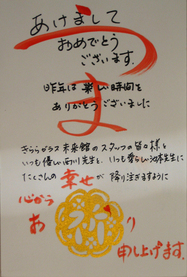 あけまして
おめでとう
ございます。
昨年は楽しい時間を
ありがとうございました
きららガラス未来館のスタッフの皆々様と
いつも優しい西川先生と、いつも愛らしい池本先生に
たくさんの幸せが降り注ぎますように
心から
お祈り
申し上げます。